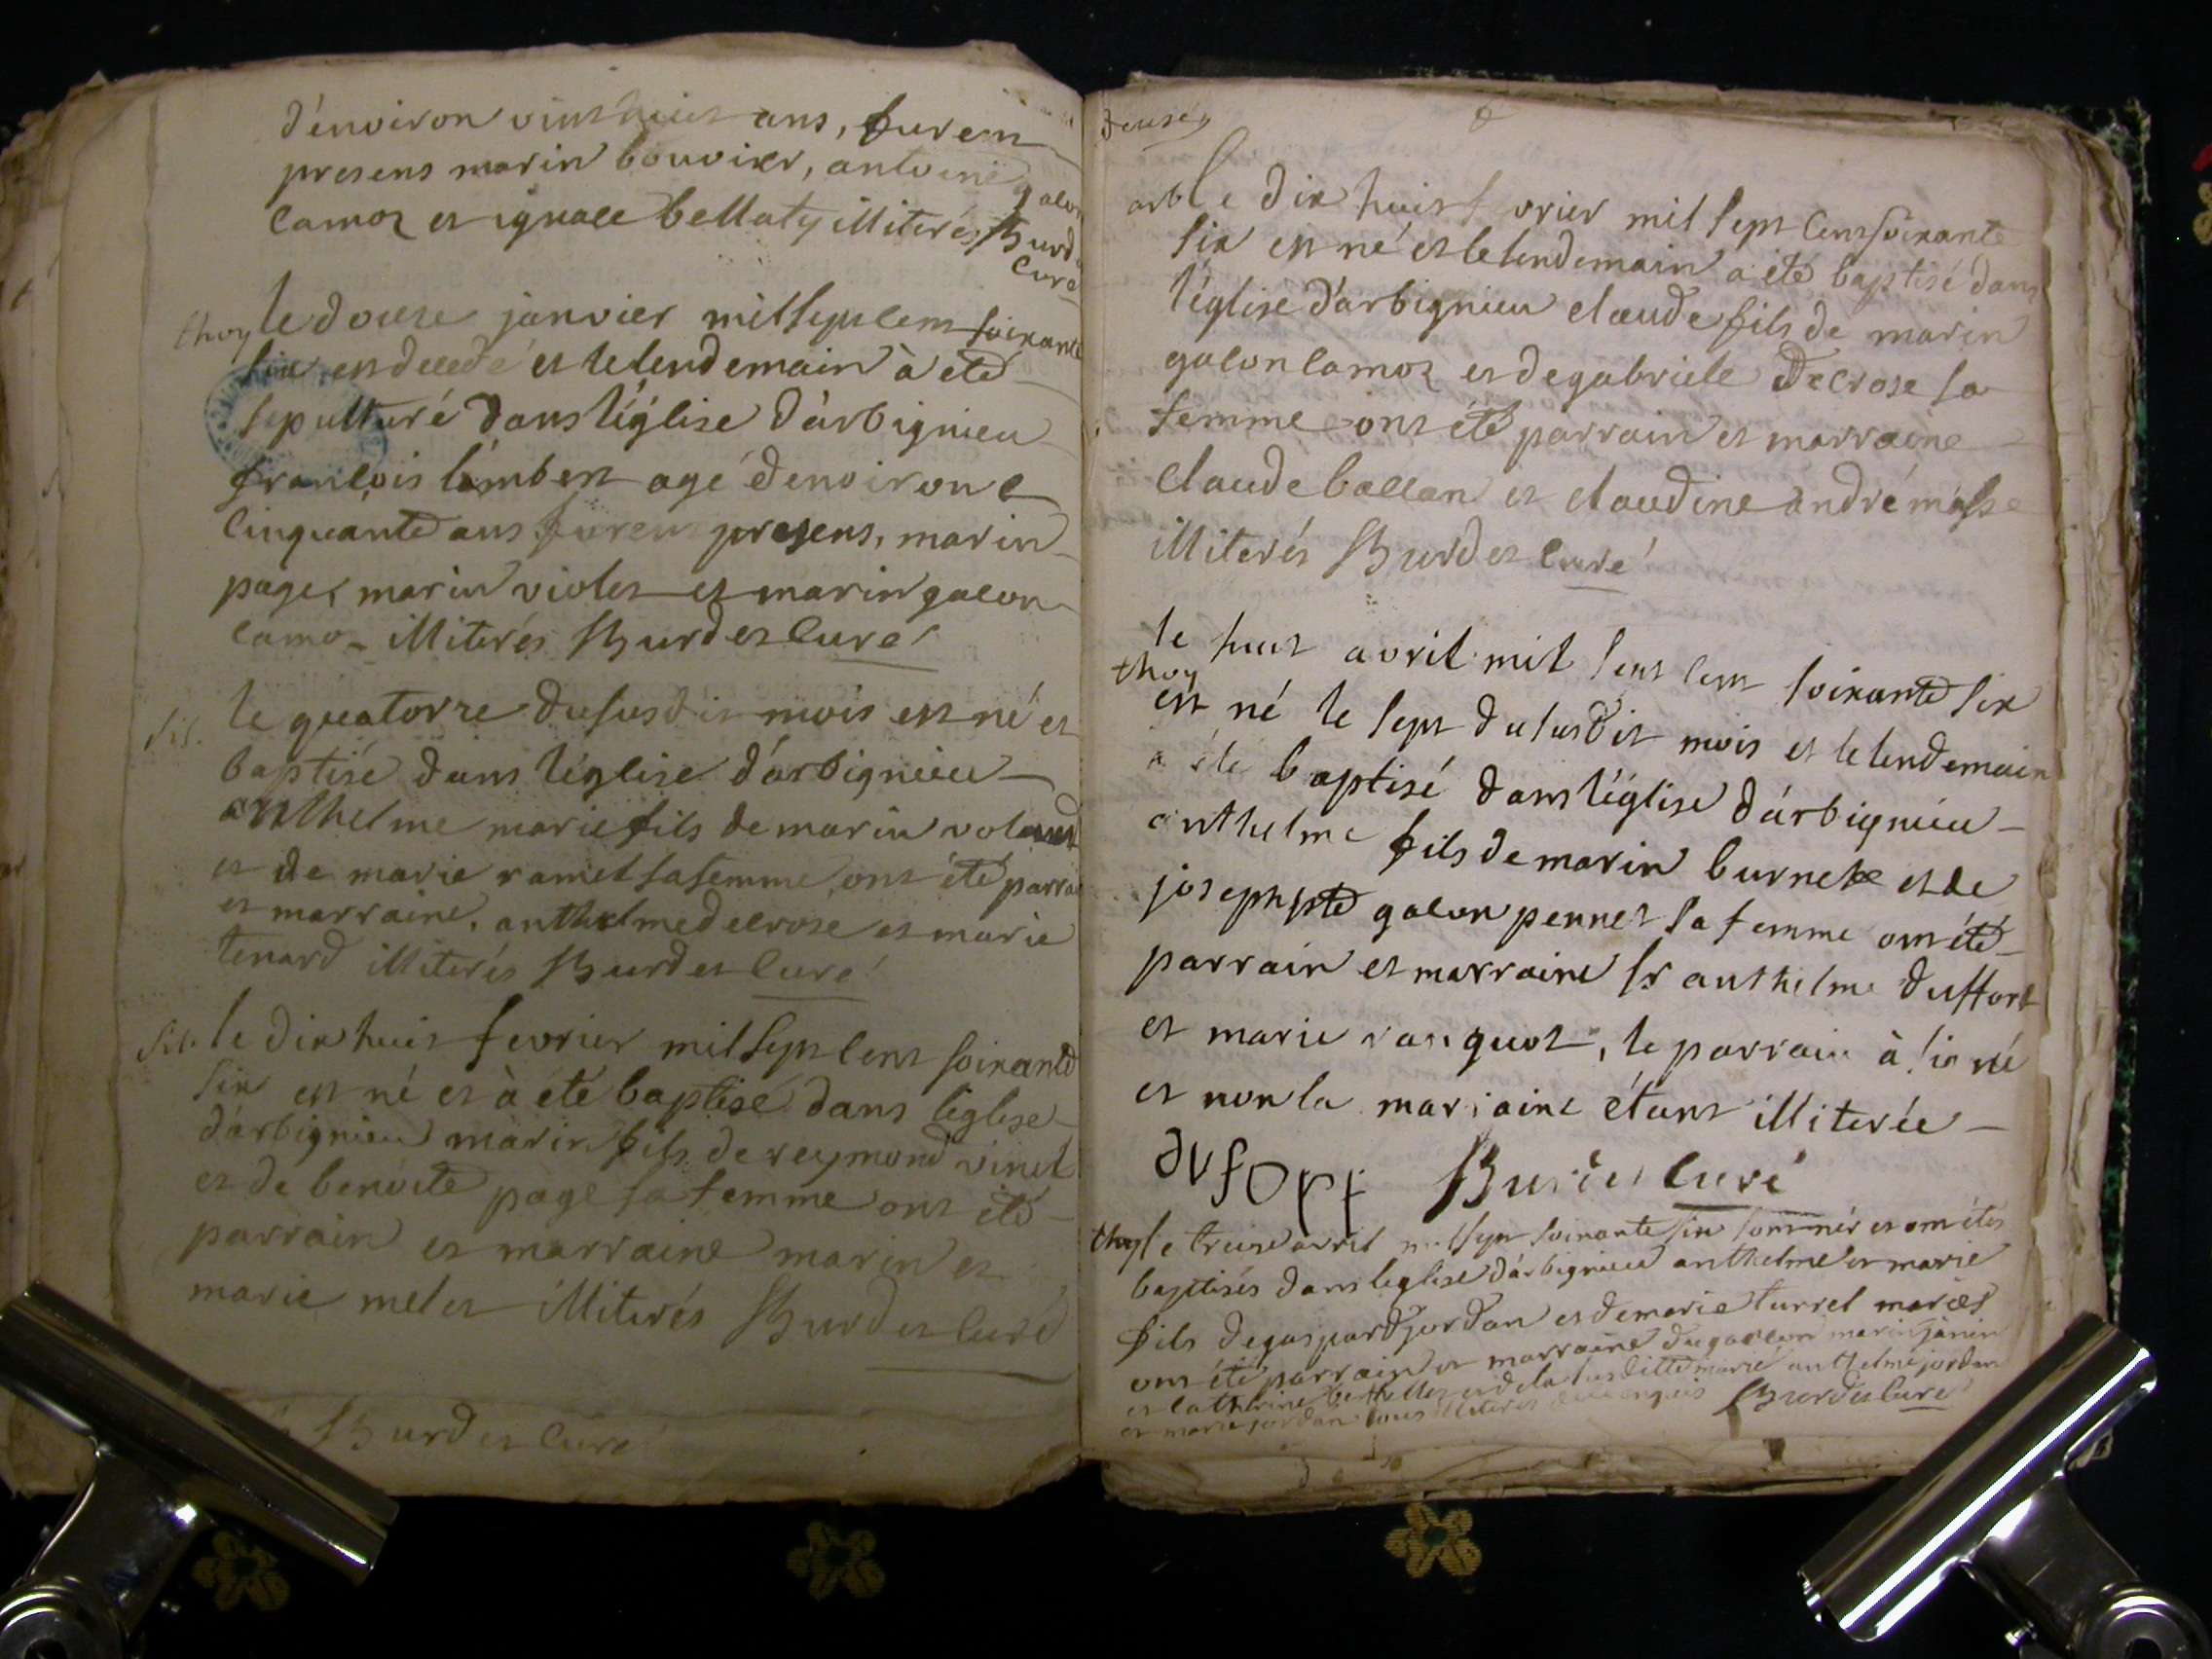 d'environ vint huit ans, furent
presens marin bouvier, antoine galon
camoz et ignace bellaty illiterés, Burdet
curé
thoy le douze janvier mil sept cent soixante
six est decedé et le lendemain à eté
sepulturé dans l'église d'arbignieu
françois limbert agé d'environ
cinquante ans furent presens, marin
page, marin violet et marin galon
camo illiterés Burdet curé
sil. le quatorze du susdit mois est né et
baptisé dans l'église d'arbignieu
anthelme marie fils de marin
et de marie ramel sa femme, ont été parra
et marraine, anthelme decrose et marie
tenard illiterés Burdet curé
sil. le dix huit fevrier mil sept cent soixante
six est né et à été baptisé dans l'eglise
d'arbignieu marin fils de reymond vinet
et de benoite page sa femme ont été
parrain et marraine marin et
marie melet illiterés Burdet curé
Burdet curé
arb le dix huit fevrier mil sept cent soixante
six est né et le lendemain a été baptisé dans
l'église d'arbignieu claude fils de marin
galon camoz et de gabriele decrose sa
femme ont été parrain et marraine
claude ballan et claudine andrémasse
illiterés Burdet curé
le huit avril mil sept cent soixante six
thoy
est né le sept du susdit mois et le lendemain
a été baptisé dans l'église d'arbignieu
anthelme fils de marin burnet et de
josephte galon pennet sa femme ont été
parrain et marraine sr anthelme duffort
et marie ranquot, le parrain à siné
et non la marraine étant illiterée
dufort Burdet curé
thoy le treise avril mil sept soixante six sont nés et ont étés
baptisés dans l'eglise d'arbignieu anthelme et marie
fils de gaspard jordan et de marie turrel mariés
ont été parrain et marraine du garcon marin janin
et catherine berthellet et de la susditte marie anthelme jordan
et marie jordan tous illiterés de ce enquis Burdet curé